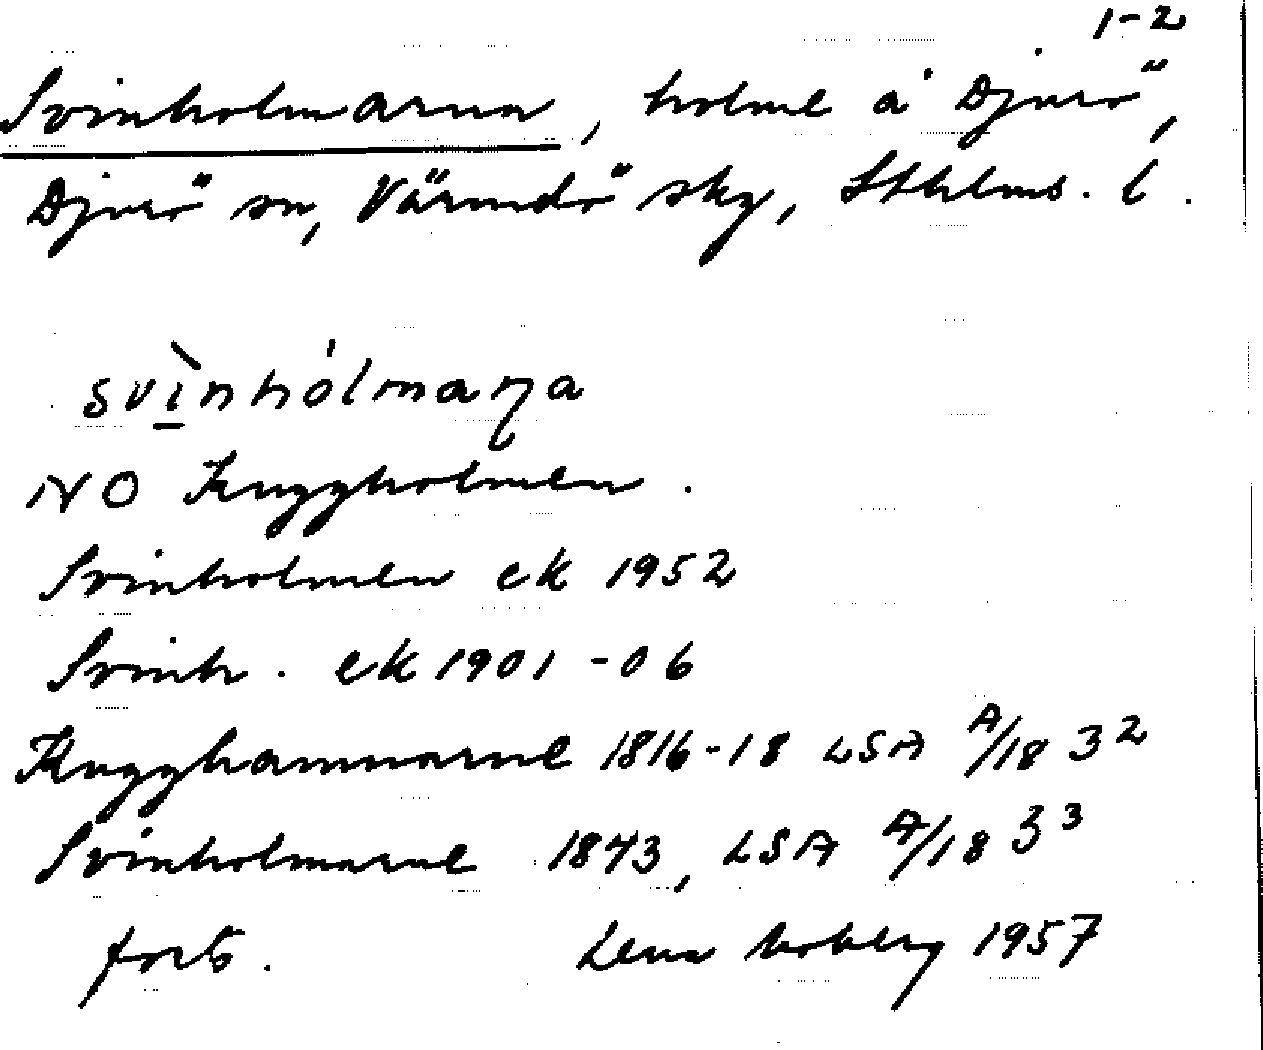 1-2
Svinholmarna, holme å Djurö,
Djurö sn, Värmdö sky, Sthlms. l.
svìnhólmaṇa
NO Kuggholmen.
Svinholmen ek 1952
Svinh. ek 1901-06
Kugghamnarne 1816-18 LSA A/18 3²
Svinholmarne 1843, LSA A/18 3³
forts. Lena Moberg 1957